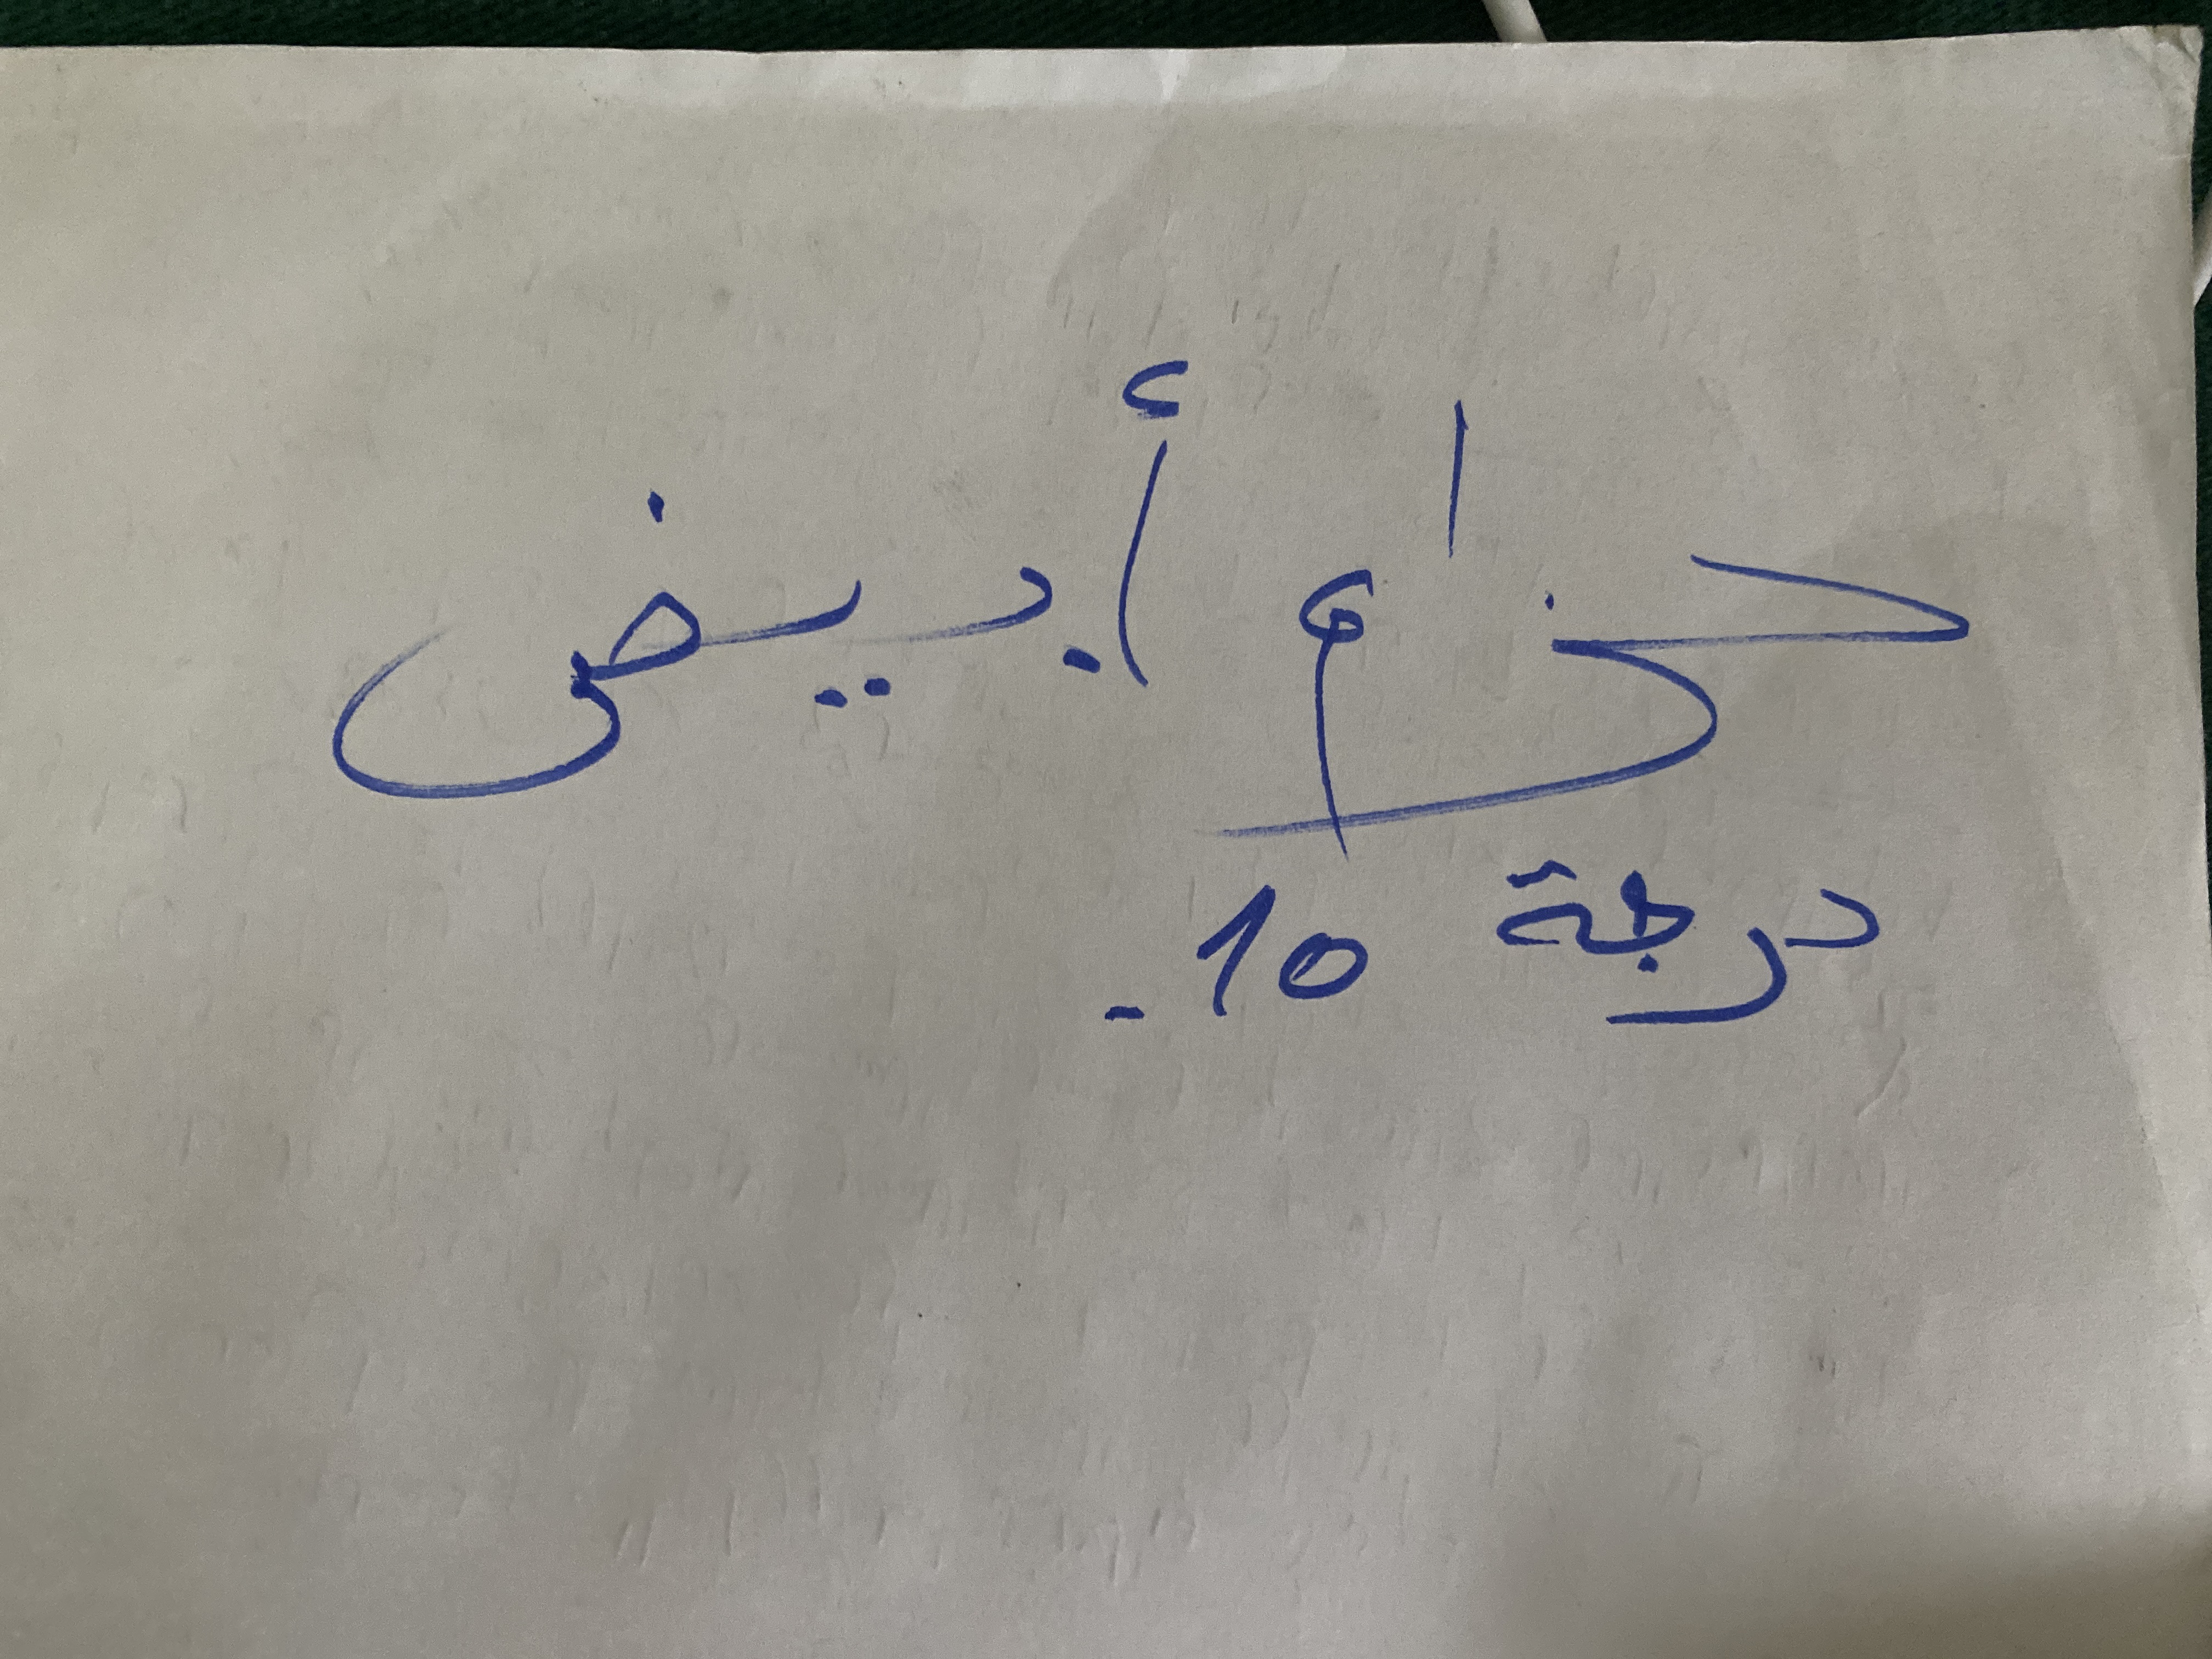 حزام أبيض
درجة 10.